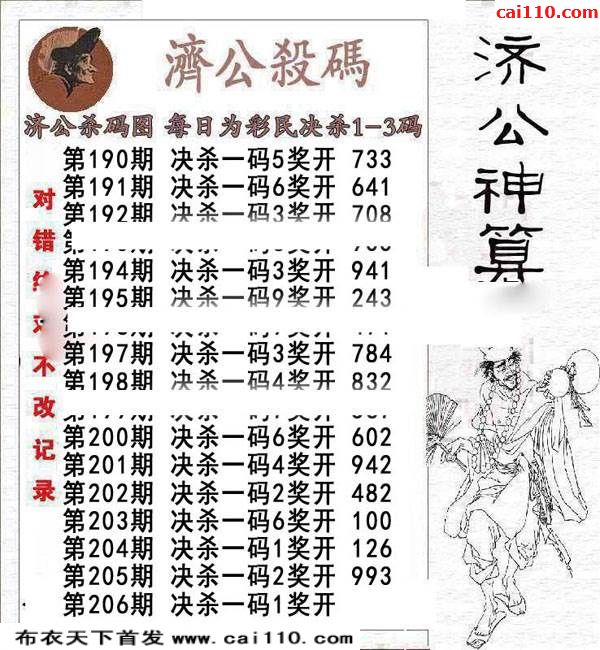 cai110.com
濟公殺碼
济公杀码图 每日为彩民决杀1-3码
第190期 决杀一码5奖开 733
第191期 决杀一码6奖开 641
第192期 决杀一码3奖开 708
第194期 决杀一码3奖开 941
第195期 决杀一码9奖开 243
第197期 决杀一码3奖开 784
第198期 决杀一码4奖开 832
第200期 决杀一码6奖开 602
第201期 决杀一码4奖开 942
第202期 决杀一码2奖开 482
第203期 决杀一码6奖开 100
第204期 决杀一码1奖开 126
第205期 决杀一码2奖开 993
第206期 决杀一码1奖开
对错
不改记录
济公神算
布衣天下首发 www.cai110.com